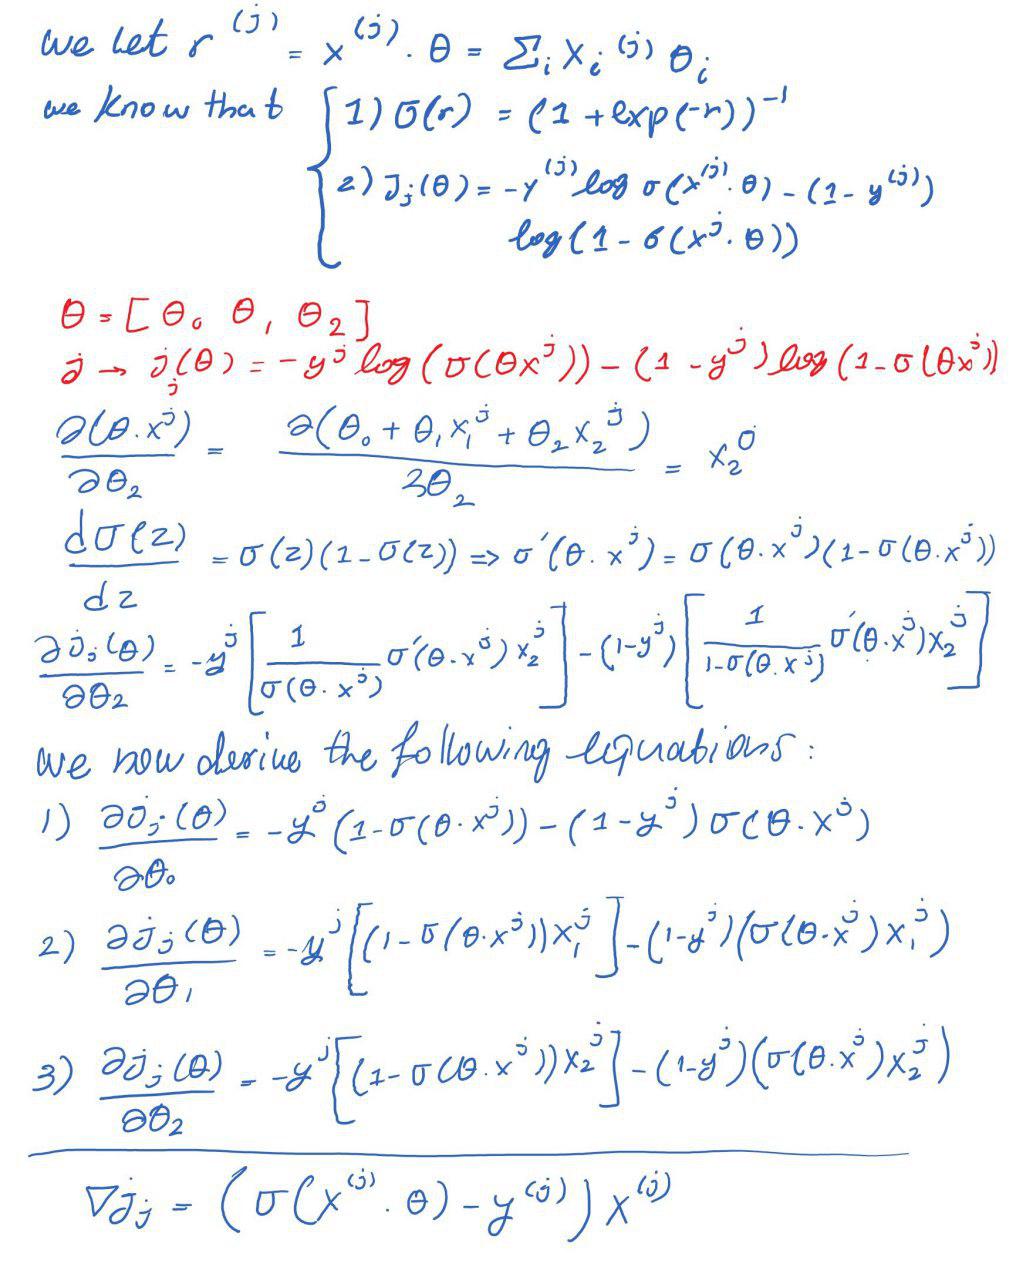 we let r^(j) = x^(j) · θ = Σ_i x_i^(j) θ_i
we know that { 1) σ(r) = (1 + exp(-r))^-1
2) J_j(θ) = -y^(j) log σ(x^(j) · θ) - (1 - y^(j))
log(1 - σ(x^j · θ))
θ = [θ_0 θ_1 θ_2]
j → j_j(θ) = -y^j log(σ(θx^j)) - (1 - y^j) log(1 - σ(θx^j))
∂(θ·x^j)/∂θ_2 = ∂(θ_0 + θ_1 x_1^j + θ_2 x_2^j)/∂θ_2 = x_2^j
dσ(z)/dz = σ(z)(1 - σ(z)) => σ'(θ·x^j) = σ(θ·x^j)(1 - σ(θ·x^j))
∂j_j(θ)/∂θ_2 = -y^j [1/σ(θ·x^j) σ'(θ·x^j) x_2^j] - (1-y^j) [1/(1-σ(θ·x^j)) σ'(θ·x^j) x_2^j]
we now derive the following equations:
1) ∂j_j(θ)/∂θ_0 = -y^j (1 - σ(θ·x^j)) - (1 - y^j) σ(θ·x^j)
2) ∂J_j(θ)/∂θ_1 = -y^j [(1 - σ(θ·x^j)) x_1^j] - (1-y^j)(σ(θ·x^j) x_1^j)
3) ∂j_j(θ)/∂θ_2 = -y^j [(1 - σ(θ·x^j)) x_2^j] - (1-y^j)(σ(θ·x^j) x_2^j)
∇j_j = (σ(x^(j) · θ) - y^(j)) x^(j)